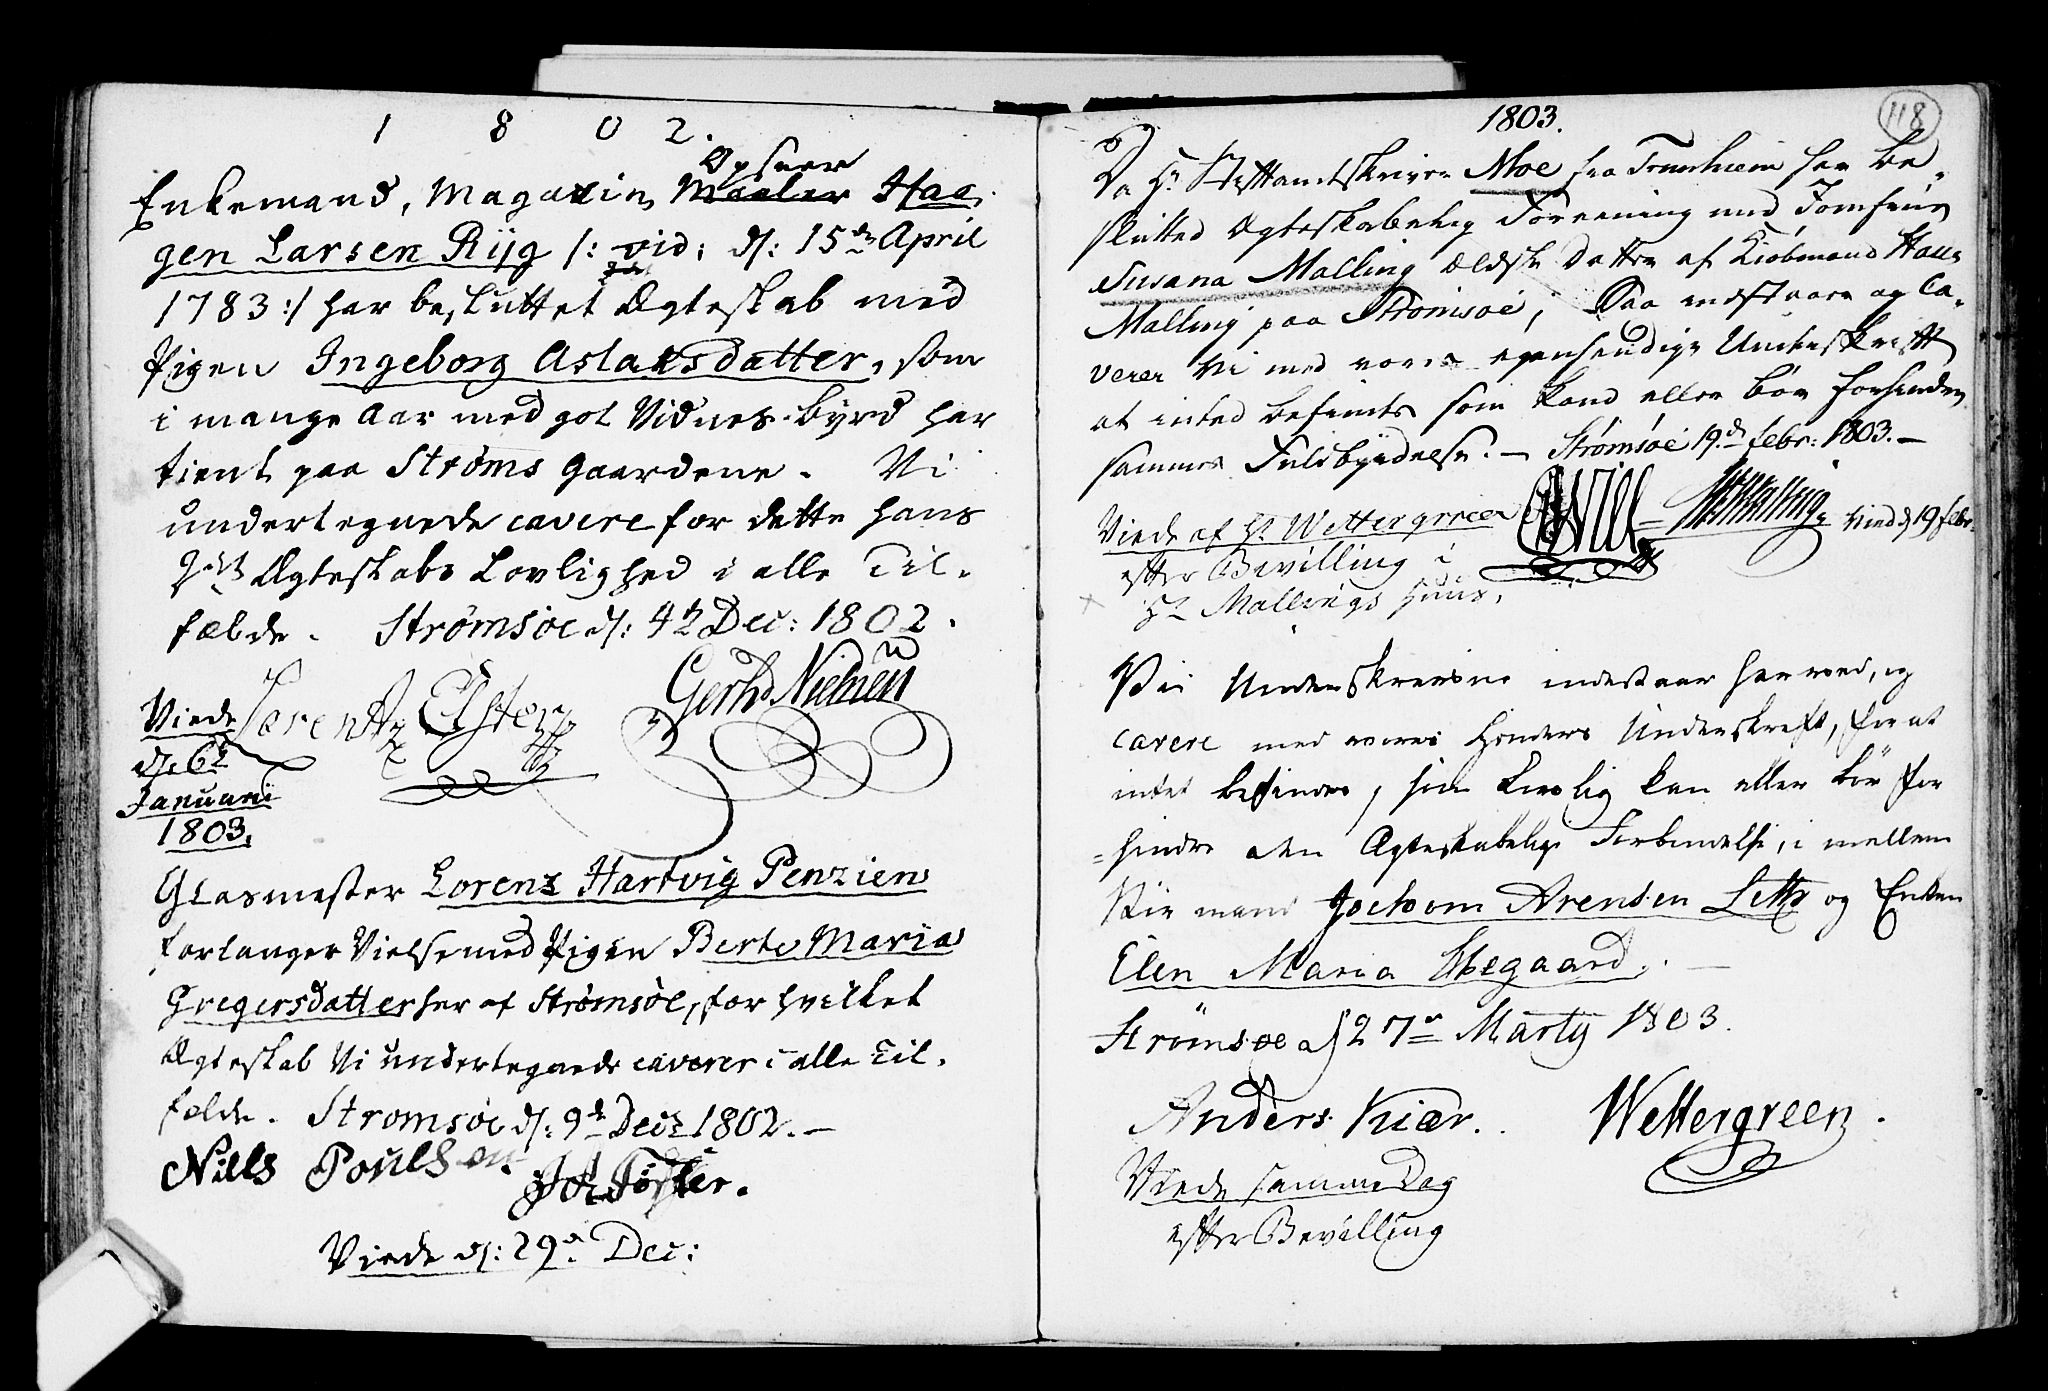 1802.
Opseer
Enkemand, Magazin Maaler Haa-
gen Larsen Riig /: vid: d: 15de April
1783 :/ har besluttet Ægteskab med
Pigen Ingeborg Aslaksdatter, som
i mange Aar med got Vidnes-byrd har
tient paa Strøms Gaardene. Vi
undertegnede cavere for dette hans
2det Ægteskabs Lovlighed i alle Til-
fælde. Strømsøe d: 4de Dec: 1802.
Lorentz Elster Gerhd Nielsen
Viede
d: 6te
Januarii
1803.
Glasmester Lorenz Hartvig Penzien
forlanger Vielse med Pigen Berte Maria
Gregersdatter her af Strømsøe, for hvilket
Ægteskab Vi undertegnede caverer i alle Til-
fælde. Strømsøe d: 9de Decr 1802.—
Niels Poulsen
Viede d: 29de Dec:
1803.
118
Da Hr Stiftamtskriver Moe fra Trundhiem har be-
slutted Ægteskabelig Foreening med Jomfrue
Susana Malling Ældste Datter af Kiøbmand Haus
Malling paa Strømsøe; Saa indstaaer og Ca-
verer Vi med vores egenhendige Underskrift
at inted befindes som kand eller bør forhindre
sammes Fuldbyrdelse. — Strømsøe 19d febr: 1803.—
Malling viede d 19 febr
Viede af Hr Wettergreen
efter Bevilling i
Hr Mallings Huus.
Vii Underskrevne indestaar herved, og
cavere med vores Henders Underskreft, for at
intet befindes, som Lovlig kan eller bør for
=hindre den Ægteskabelige Forbindelse, i mellem
Jochom Arensen Leth og Enken
Elen Maria Skegaard.
Strømsøe d 27de Marty 1803.
Anders Kiær. Wettergreen.
Viede samme Dag
efter Bevilling